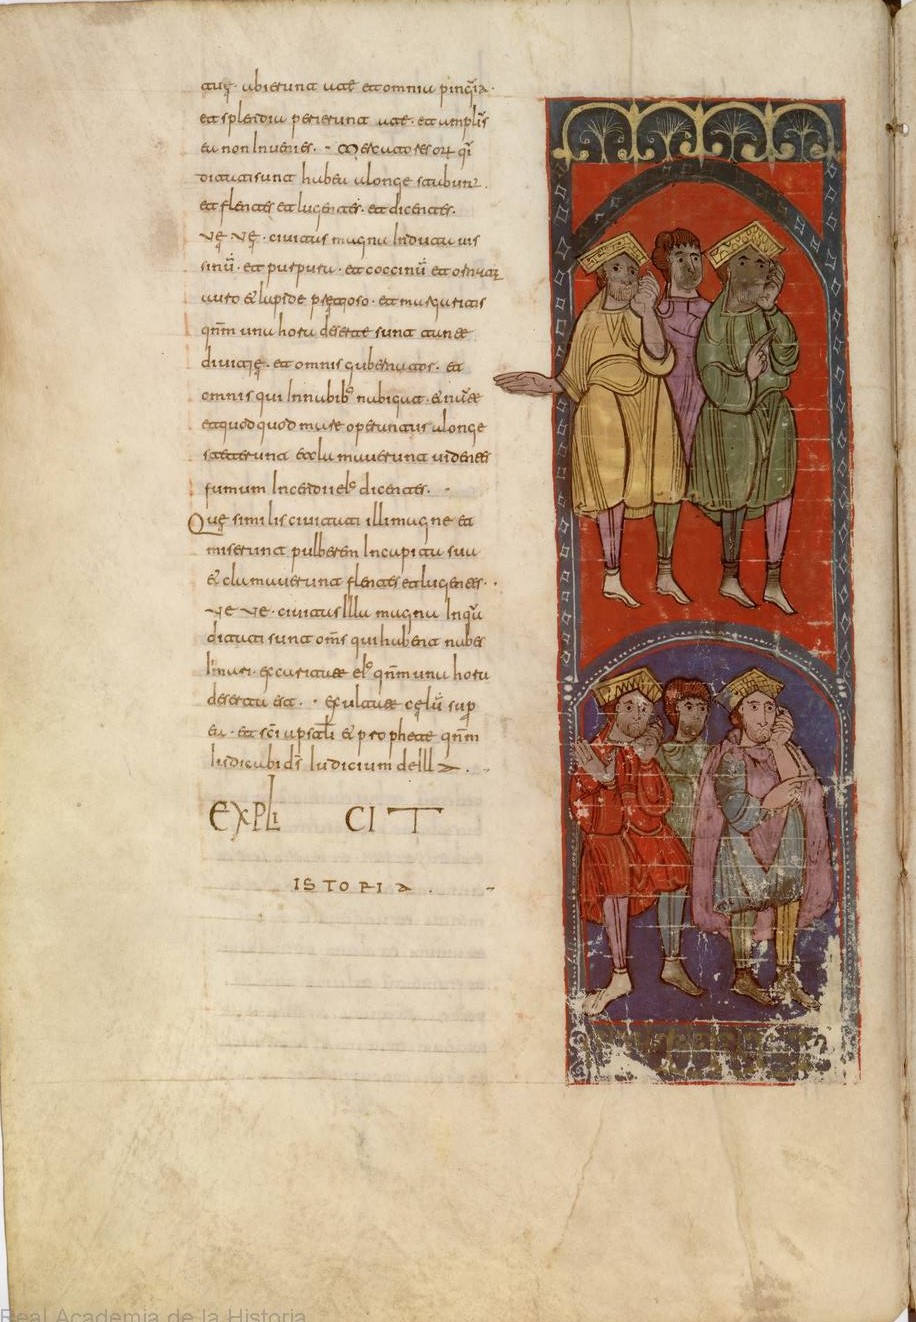 abierunt a te et omnia pinq̄ia·
et splendida perierunt a te· et amplīs
ea non Inuenies· Mercatores qī
ditati sunt hab ea a longe stabunt·
et flentes et lugentes· et dicentes·
Vę Vę· ciuitas magna Induta uis
sinū· et purpura· et coccinū et
auro et lapide pretioso· et margaritis
qn̄m una hora deserte sunt tante
diuitię· et omnis gubernator· et
omnis qui In nabibus nabigat· et
et quodquod mare operatus a longe
steterunt exclamauerunt uidentes
fumum Incendii eius dicentes·
Quę similis ciuitati illi magne et
miserunt pulberem In capita sua
et clamauerunt flentes et lugentes·
Ve Ve· ciuitas Illa magna In qua
ditati sunt om̄s qui habent nabes
In mari· ex caritate eius qn̄m una hora
deserta est· exultate cęlū sup
ea· et sc̄i apsoli et prophete qn̄m
Iudicabit d̄s Iudicium de Illa
EXPLICIT
ISTORIA
Real Academia de la Historia